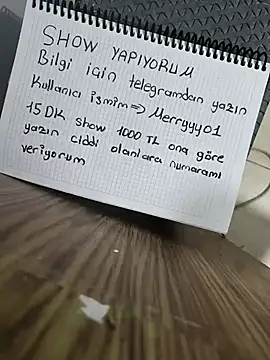 SHOW YAPIYORUM
Bilgi için telegramdan yazın
Kullanıcı ismim => Merryyy01
15 DK show 1000 TL ona göre
yazın ciddi olanlara numaramı
veriyorum